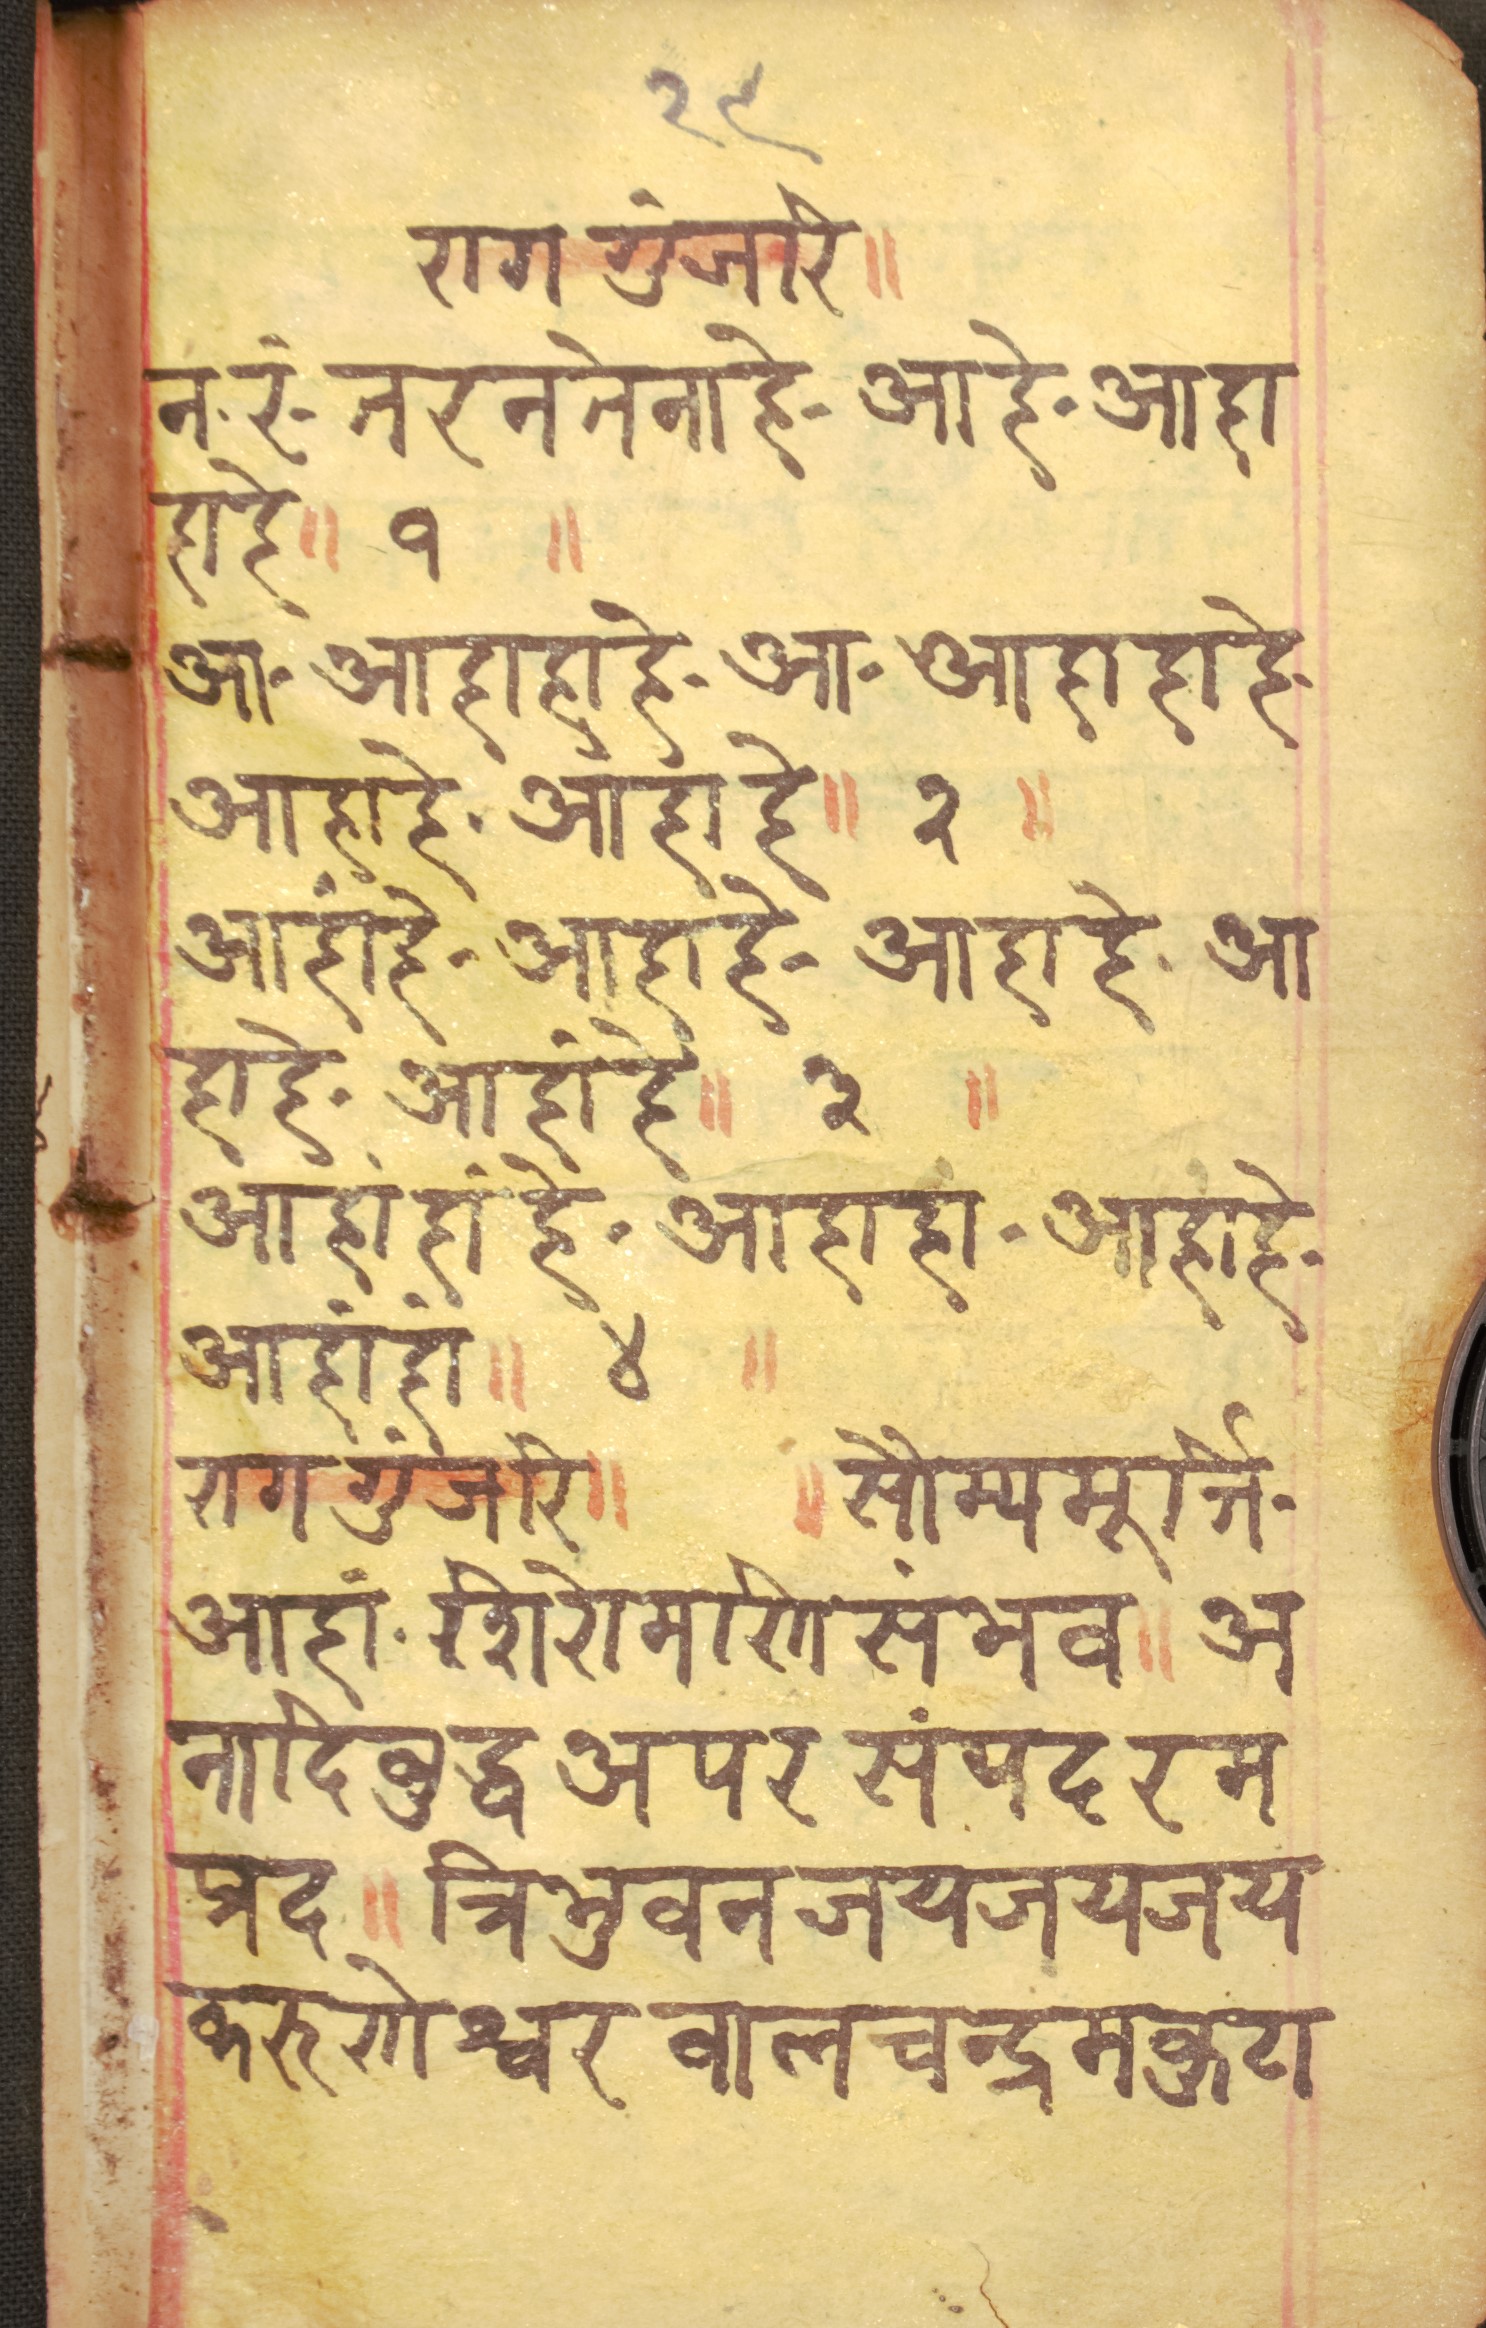 २९
राग गुंजरि॥
न·रं· तरनतेनाहे· आहे· आहा
हाहे॥ १ ॥
आ· आहाहाहे· आ· आहाहाहे·
आहाहे· आंहांहे॥ २ ॥
आहांहे· आहाहे· आहाहे· आ
हाहे· आहांहे॥ ३ ॥
आहांहांहे· आहाहा· आहाहे·
आहांहां॥ ४ ॥
राग गुंजरि॥ ॥सौम्यमूर्त्ति·
आहां· शिरोमणिसंभव॥ अ
नादिबुद्ध अपर संपदरम
प्रद॥ त्रिभुवन जयजयजय
करुणेश्वर बालचन्द्रमकुटा